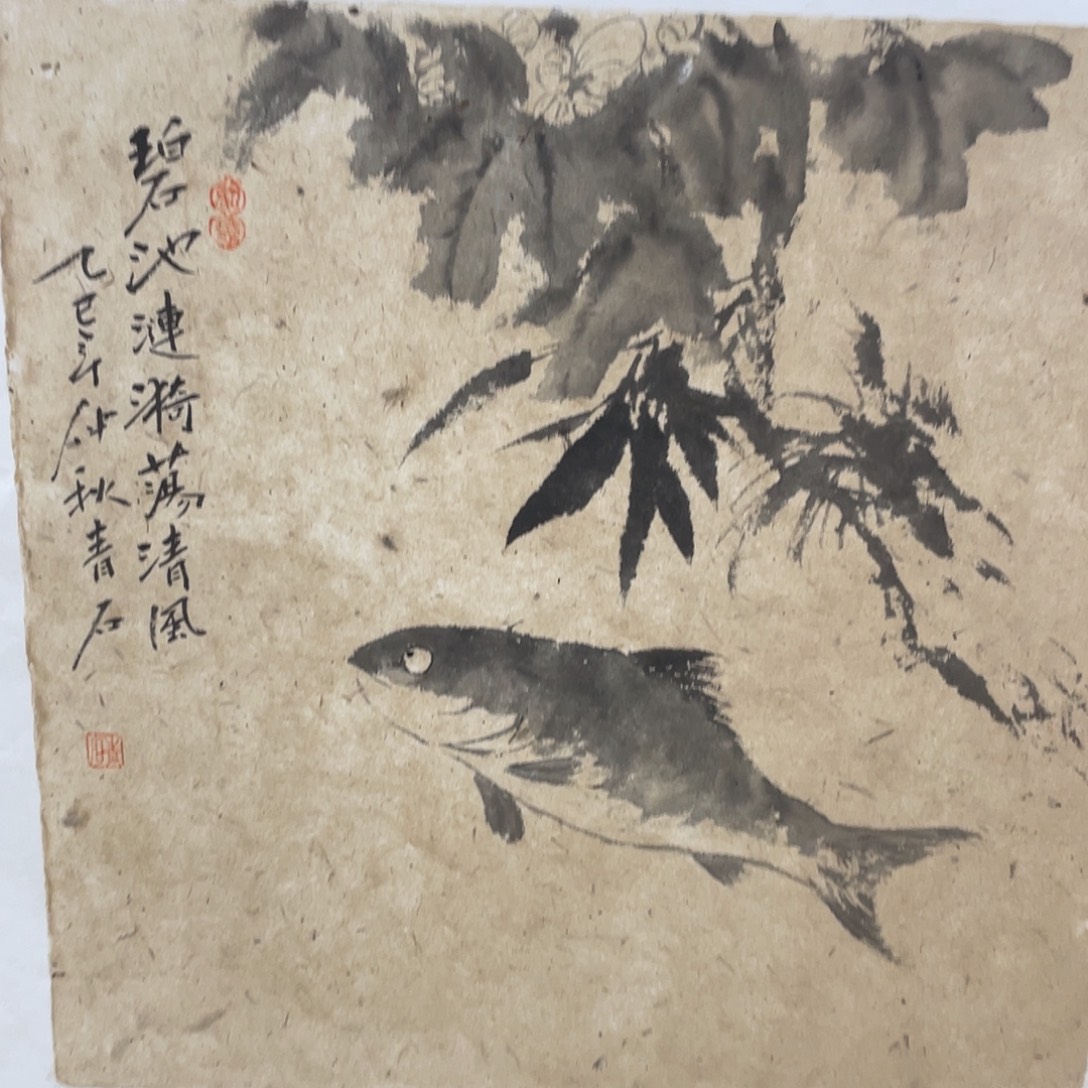 碧池漣漪蕩清風
乙巳年仲秋青石